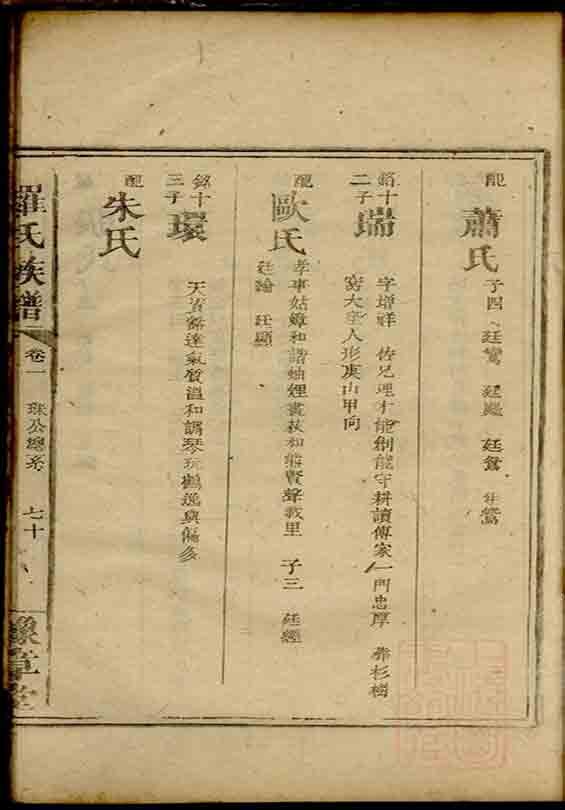 配
蕭氏
子四 廷鸞 廷 廷鴛 廷鶯
銘十二子
瑞
字增祥 佐兄理才能創能守耕讀傳家一門忠厚 葬杉樹
窩大 人形庚山甲向
配
歐氏
孝事姑嫜和諧妯娌畫荻和熊賢聲載里 子三 廷經
廷論 廷顯
銘十三子
環
天資豁達氣質溫和調琴玩鶴逸興偏多
配
朱氏
羅氏族譜
卷一
珠公總系
七十
豫章堂